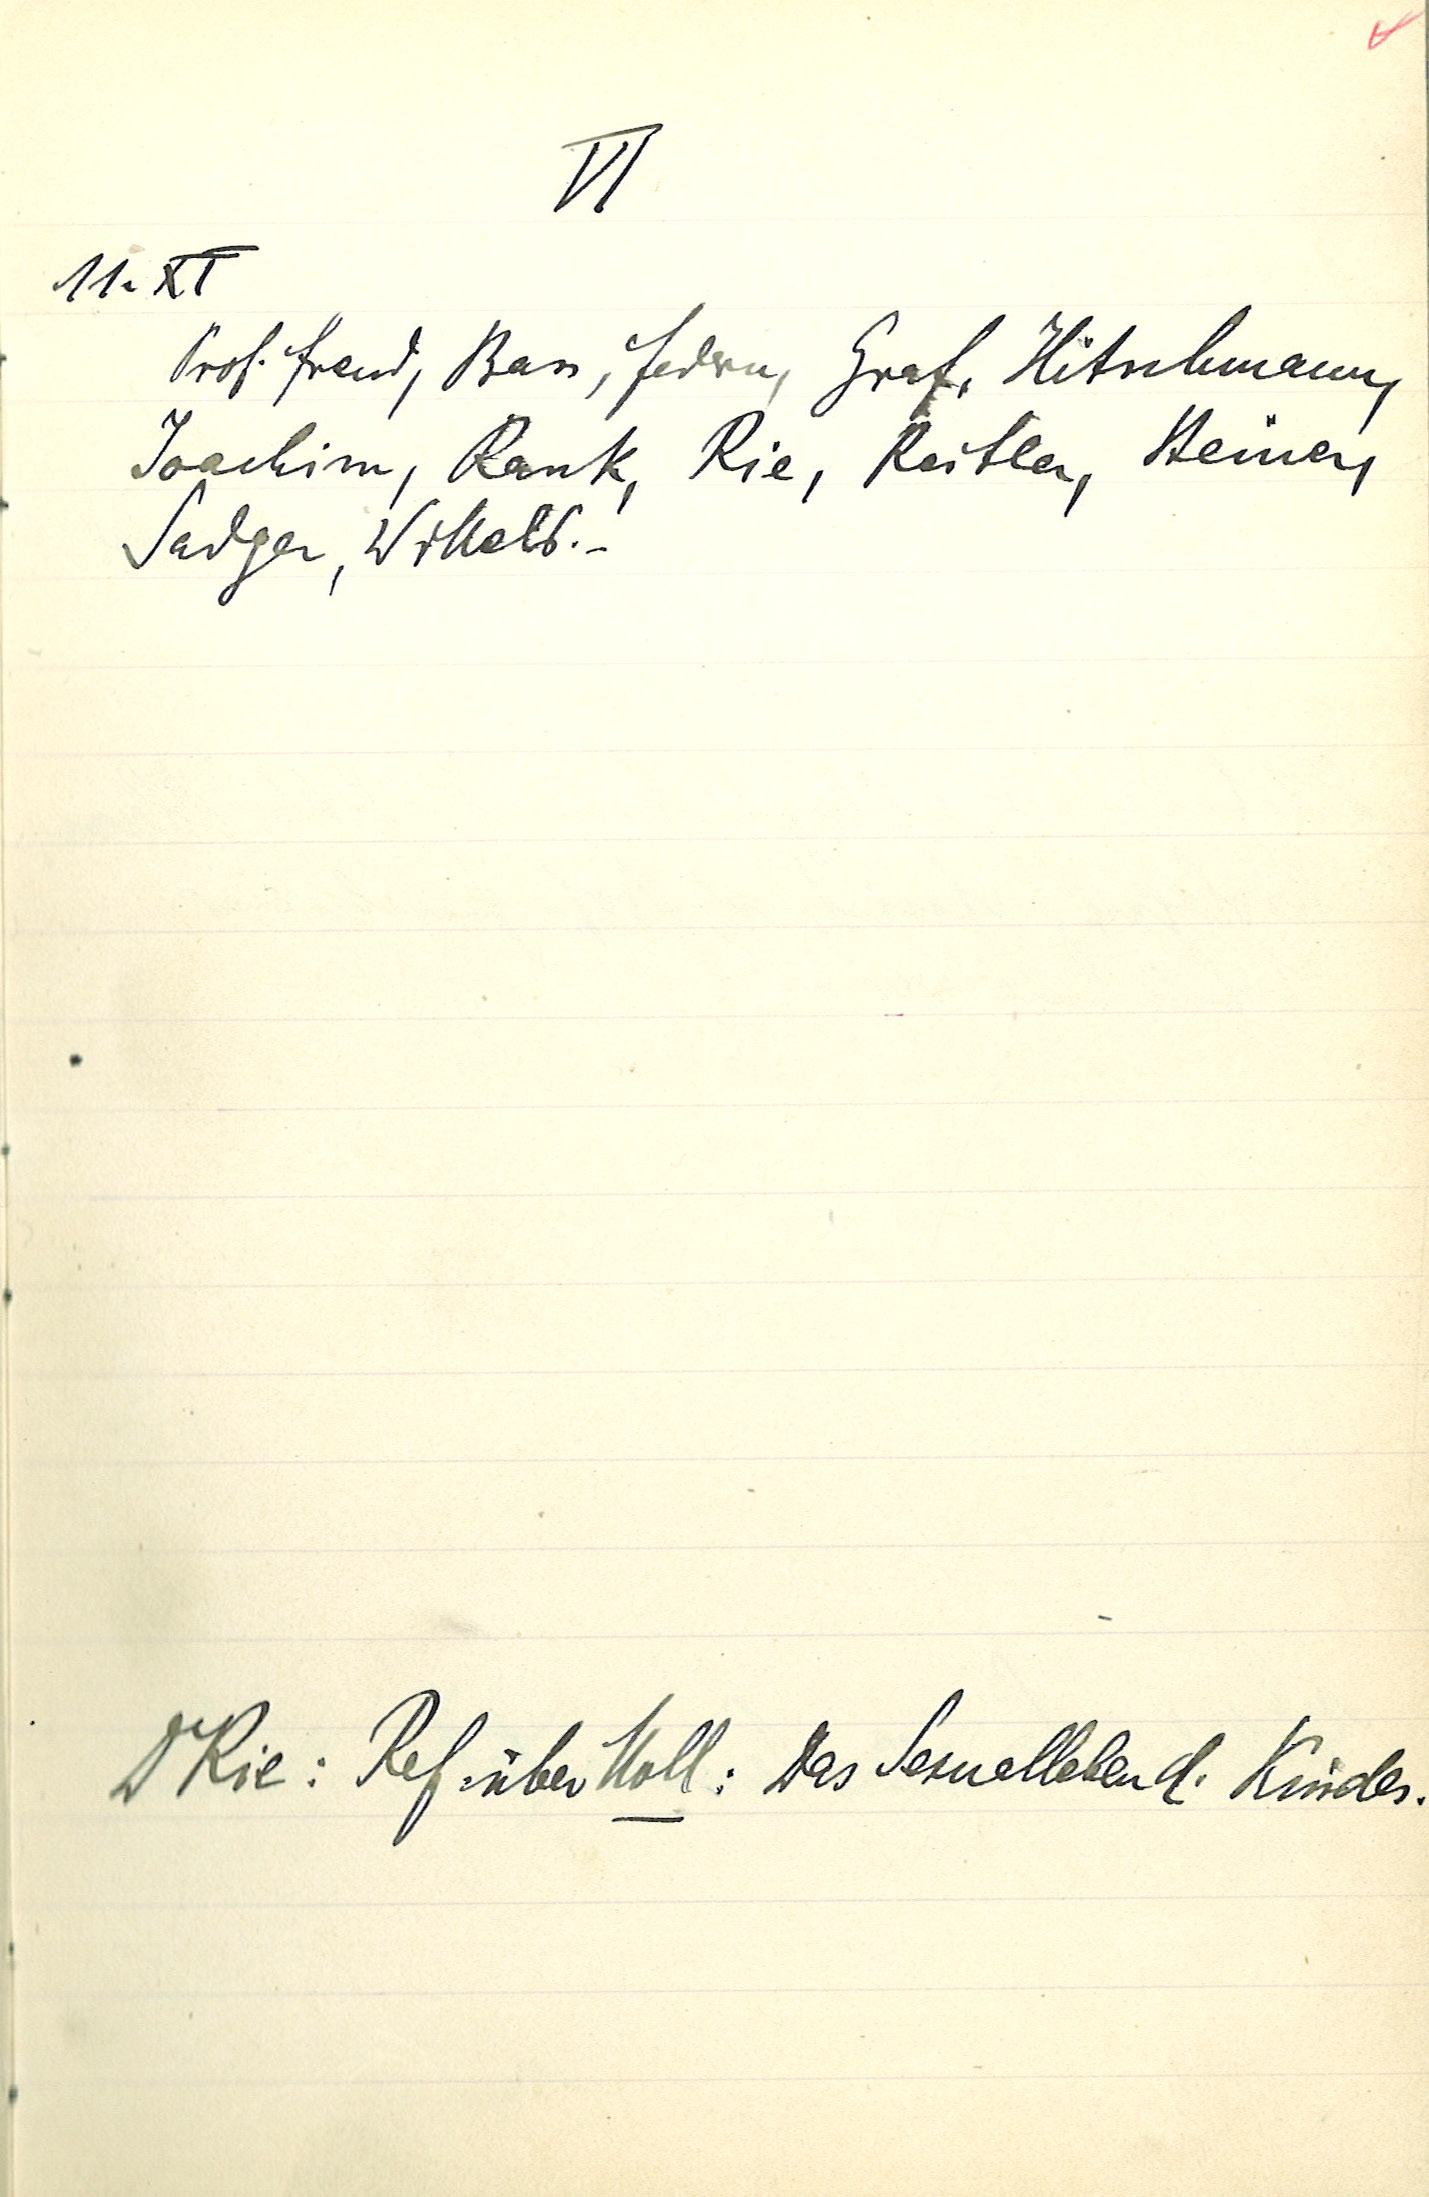 VI
11. XI
Prof. Freud, Bass, Federn, Graf, Hitschmann,
Joachim, Rank, Rie, Reitler, Steiner,
Sadger, Wittels.-
Dr Rie: Ref. über Moll: Das Sexualleben d. Kindes.